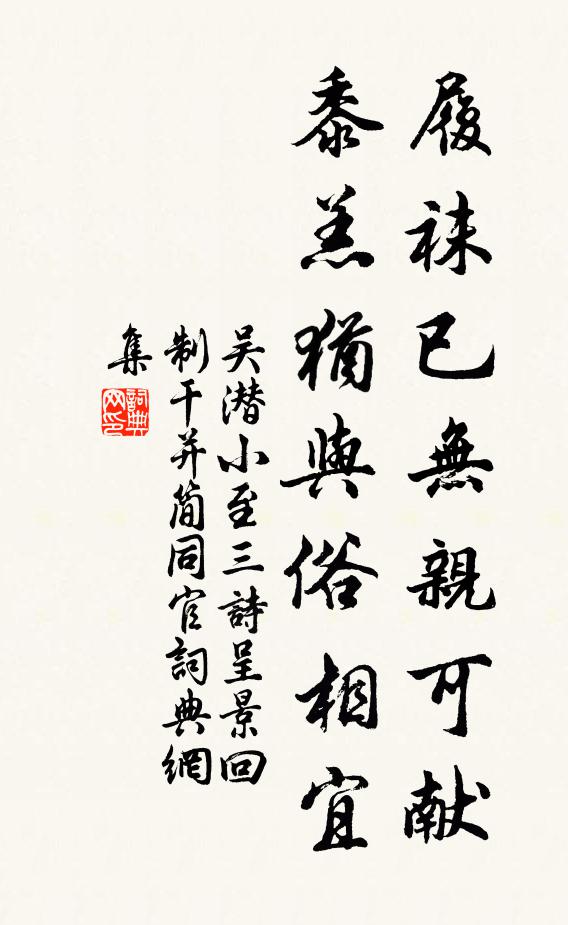 履袜已無親可献
黍羔猶與俗相宜
吴潜小至三詩呈景回
制干并简同官詞典網
集
詞典网印